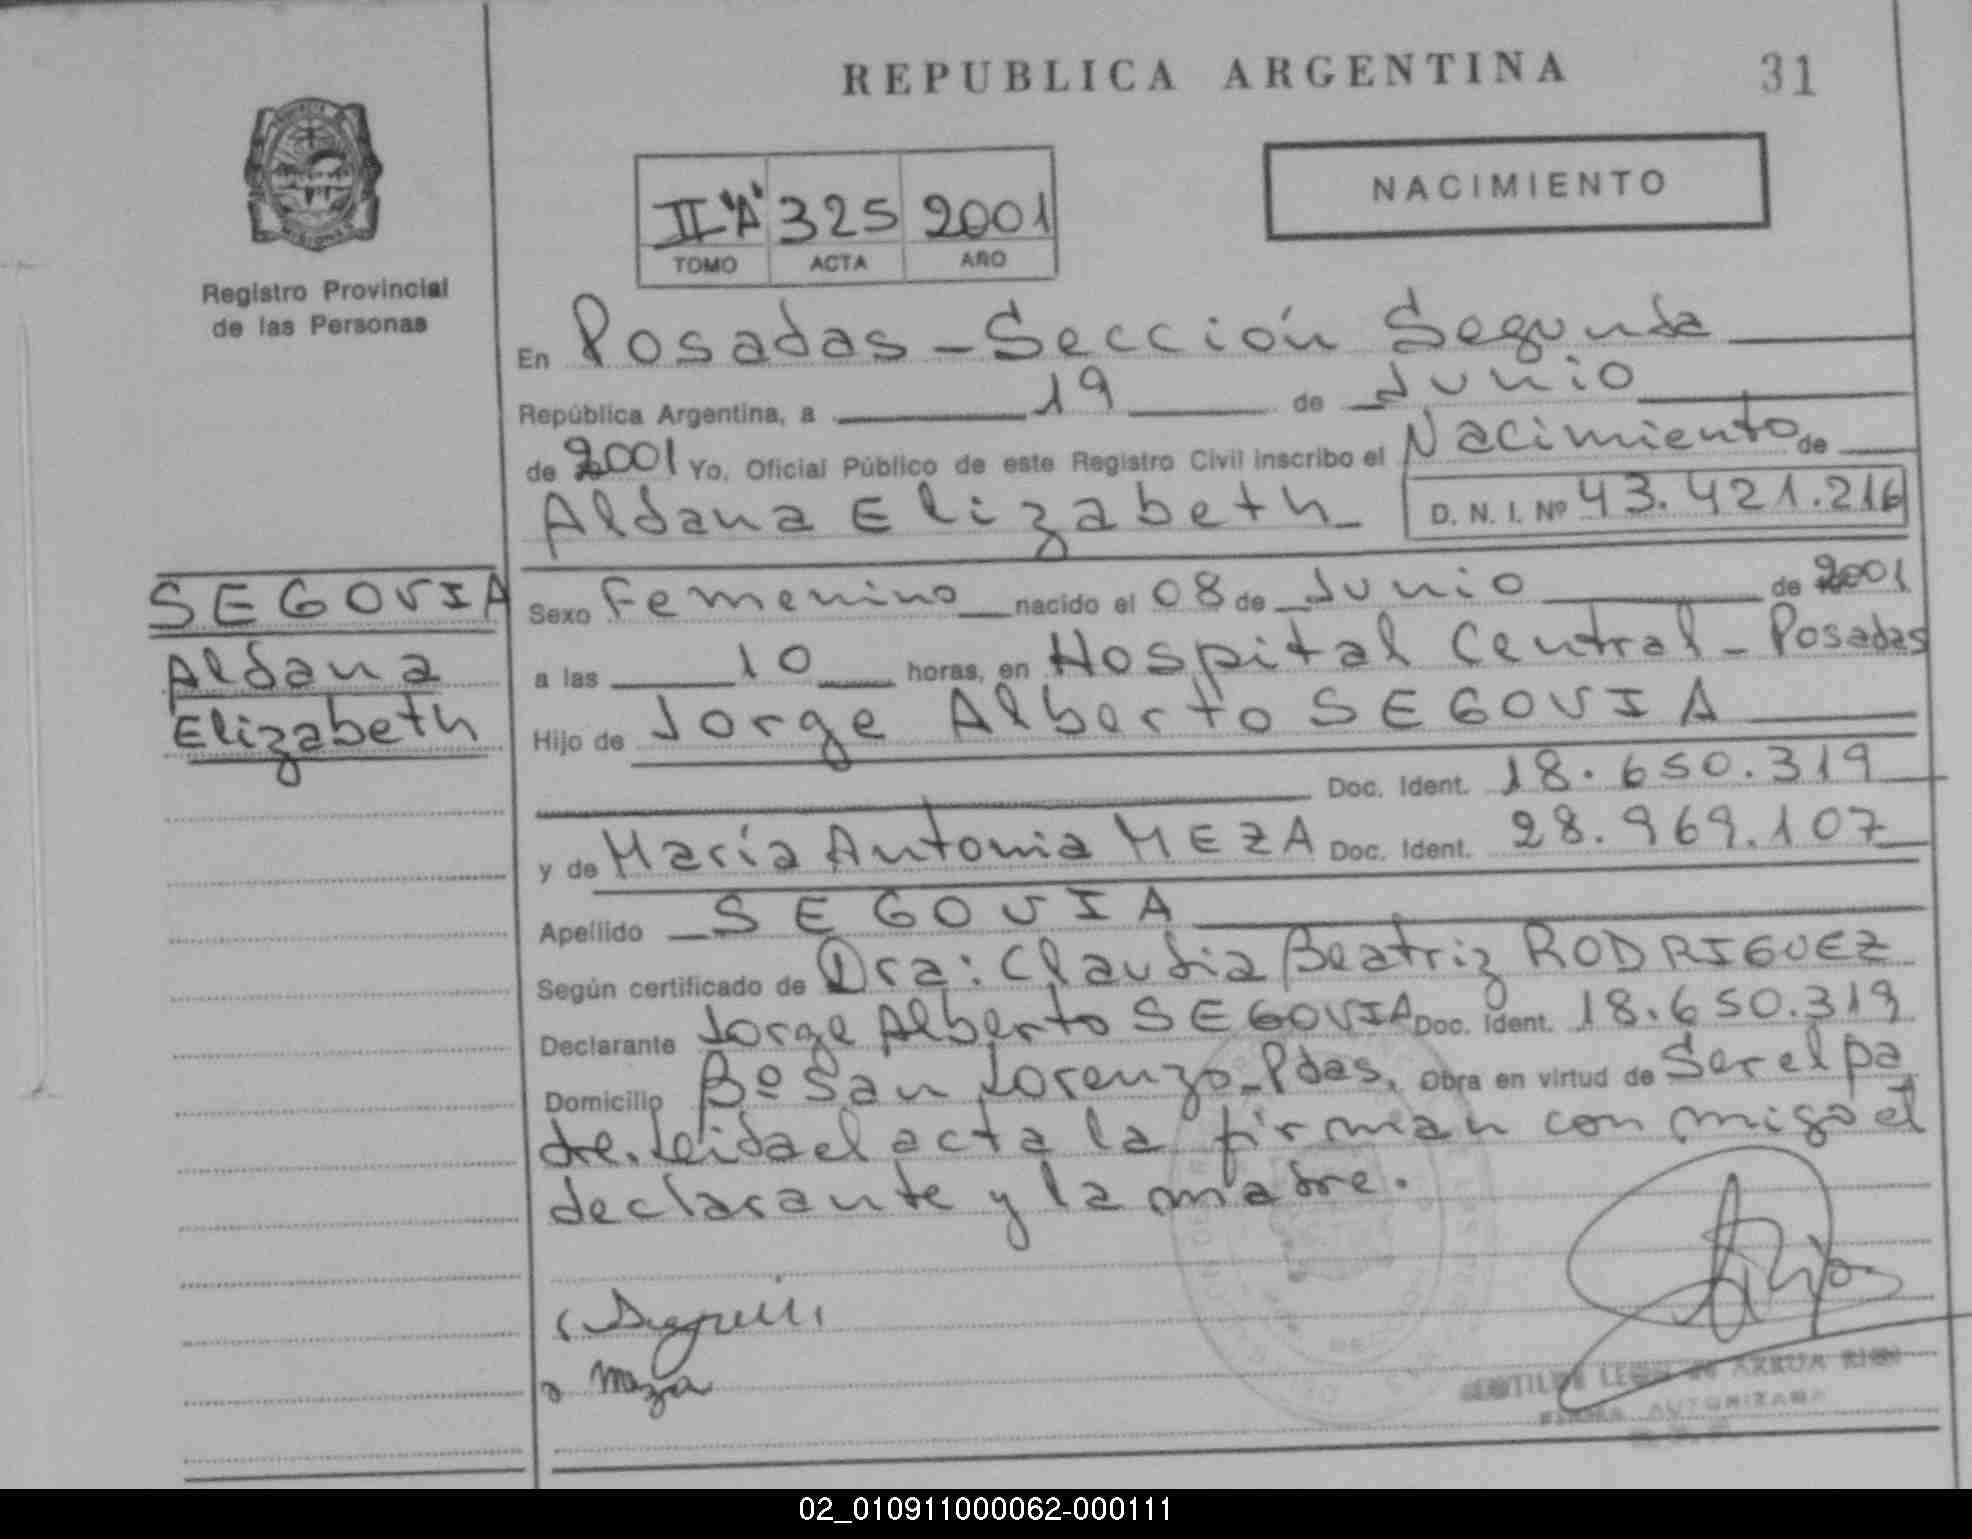 REPUBLICA ARGENTINA
31
NACIMIENTO
II "A" 325 2001
TOMO ACTA AÑO
Registro Provincial
de las Personas
En Posadas - Sección Segunda
República Argentina, a 19 de Junio
de 2001 Yo, Oficial Público de este Registro Civil inscribo el Nacimiento de
Aldana Elizabeth D. N. I. Nº 43.421.216
SEGOVIA
Aldana
Elizabeth
Sexo Femenino nacido el 08 de Junio de 2001
a las 10 horas, en Hospital Central - Posadas
Hijo de Jorge Alberto SEGOVIA
Doc. Ident. 18.650.319
y de María Antonia MEZA Doc. Ident. 28.969.107
Apellido SEGOVIA
Según certificado de Dra: Claudia Beatriz RODRIGUEZ
Declarante Jorge Alberto SEGOVIA Doc. Ident. 18.650.319
Domicilio Bº San Lorenzo - Pdas. Obra en virtud de Ser el pa
dre. Leida el acta la firman con migo el
declarante y la madre.
Meza
FIRMA AUTORIZADA
02_010911000062-000111